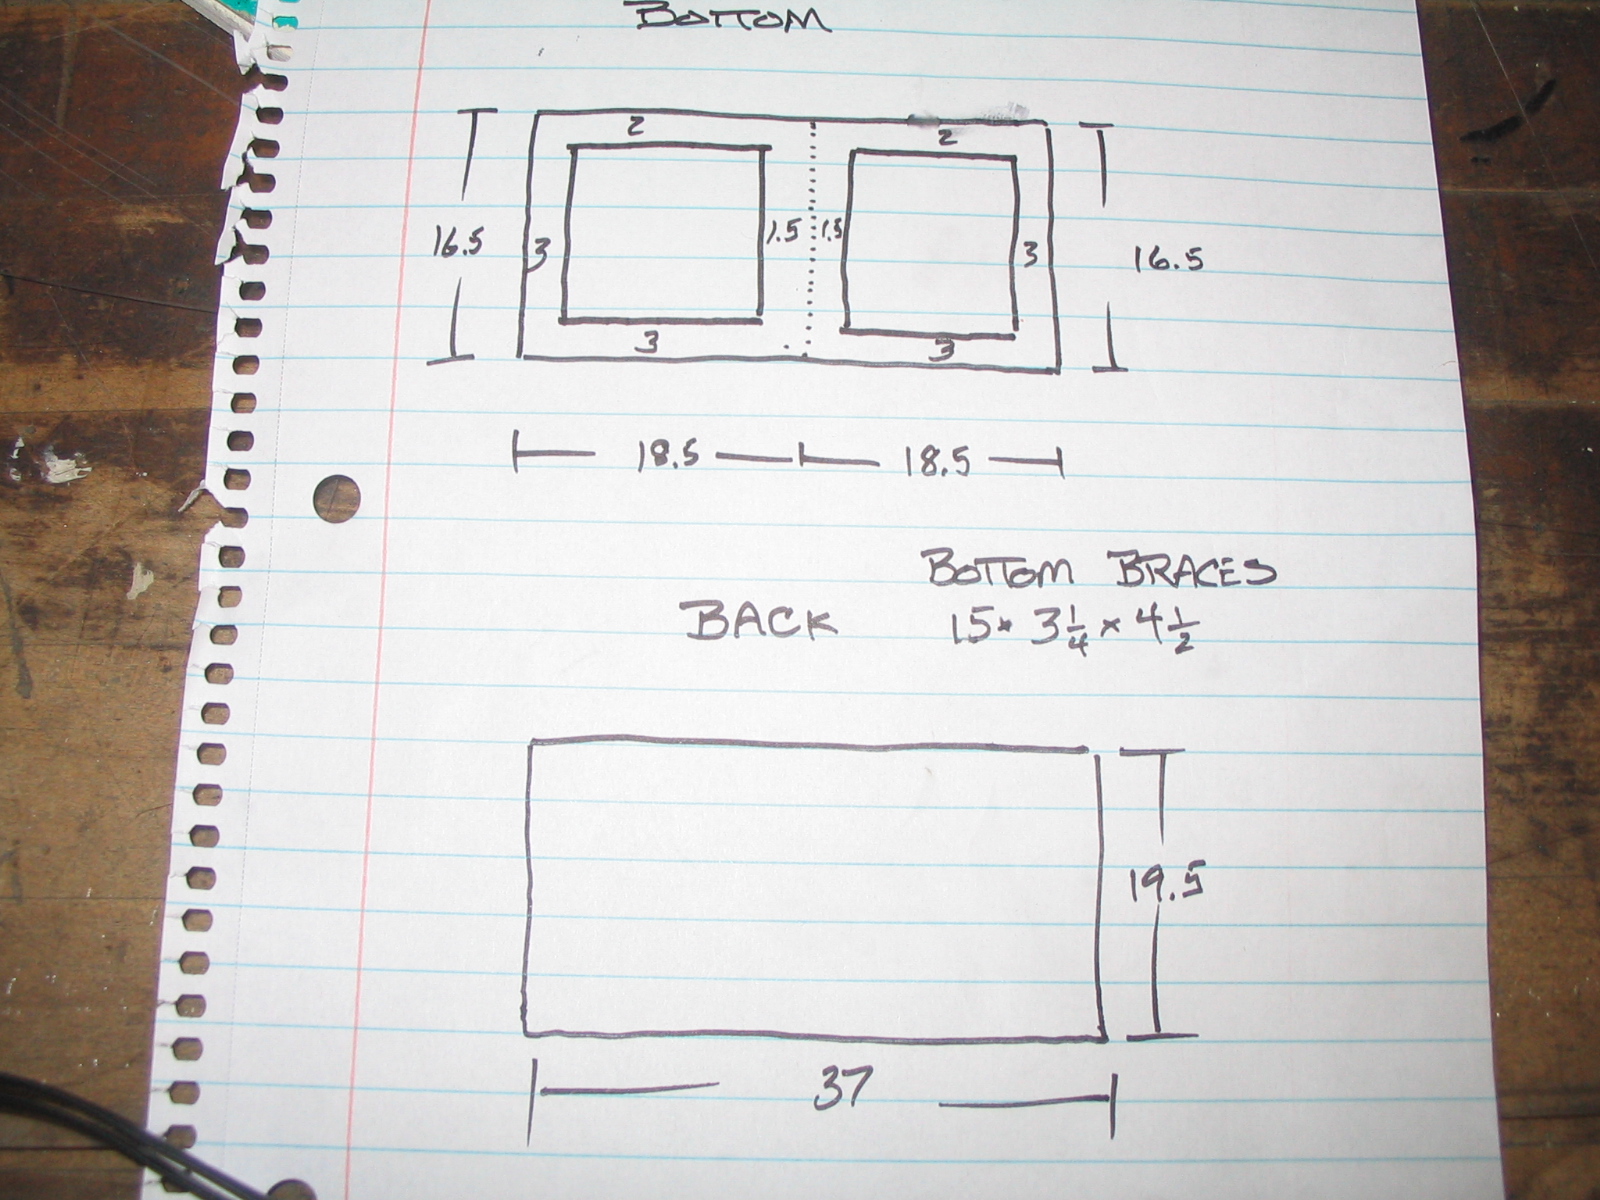 BOTTOM
2 2
16.5 3 1.5 1.5 3 16.5
3 3
18.5 18.5
BOTTOM BRACES
BACK 15 x 3 1/4 x 4 1/2
19.5
37